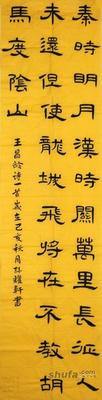 秦時明月漢時關萬里長征人
未還但使龍城飛將在不教胡
馬度陰山
王昌齡詩一首歲在己亥秋月